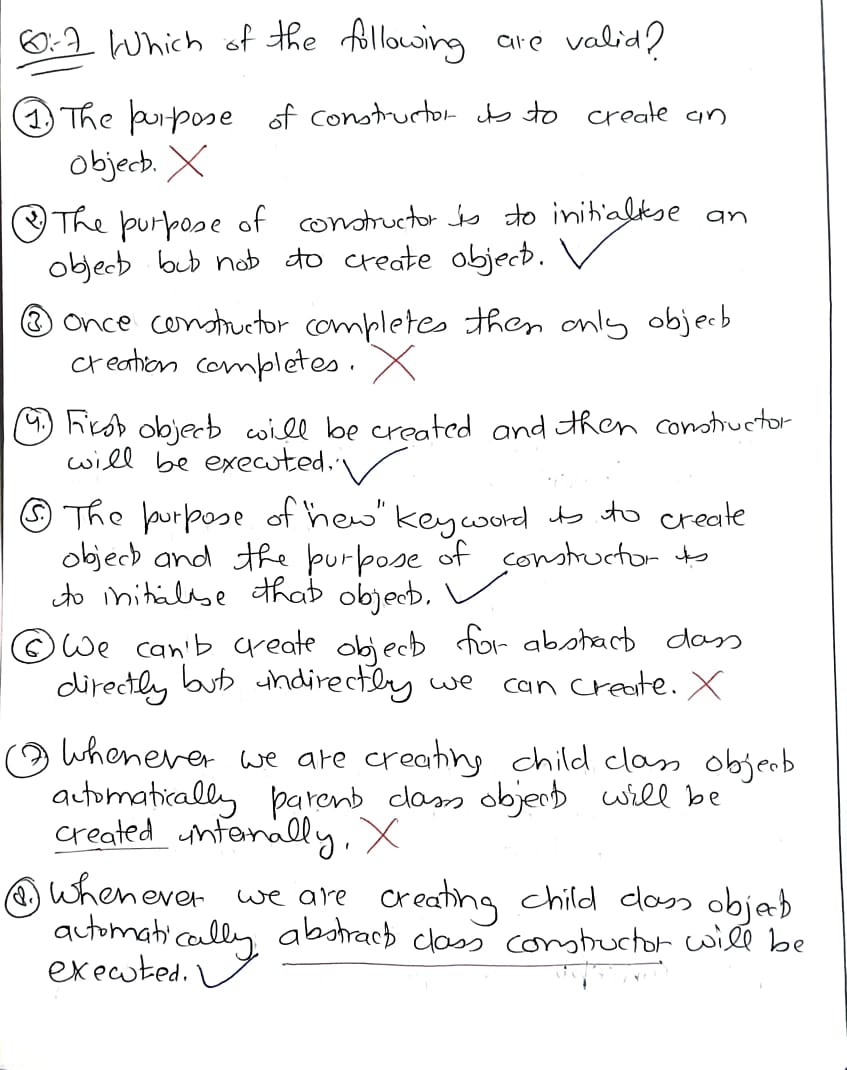 Q:-7 Which of the following are valid?
1. The purpose of constructor is to create an
object. ✗
2. The purpose of constructor is to initialise an
object but not to create object. ✓
3. Once constructor completes then only object
creation completes. ✗
4. First object will be created and then constructor
will be executed. ✓
5. The purpose of "new" keyword is to create
object and the purpose of constructor is
to initialise that object. ✓
6 We can't create object for abstract class
directly but indirectly we can create. ✗
7 Whenever we are creating child class object
automatically parent class object will be
created internally. ✗
8. Whenever we are creating child class object
automatically abstract class constructor will be
executed. ✓